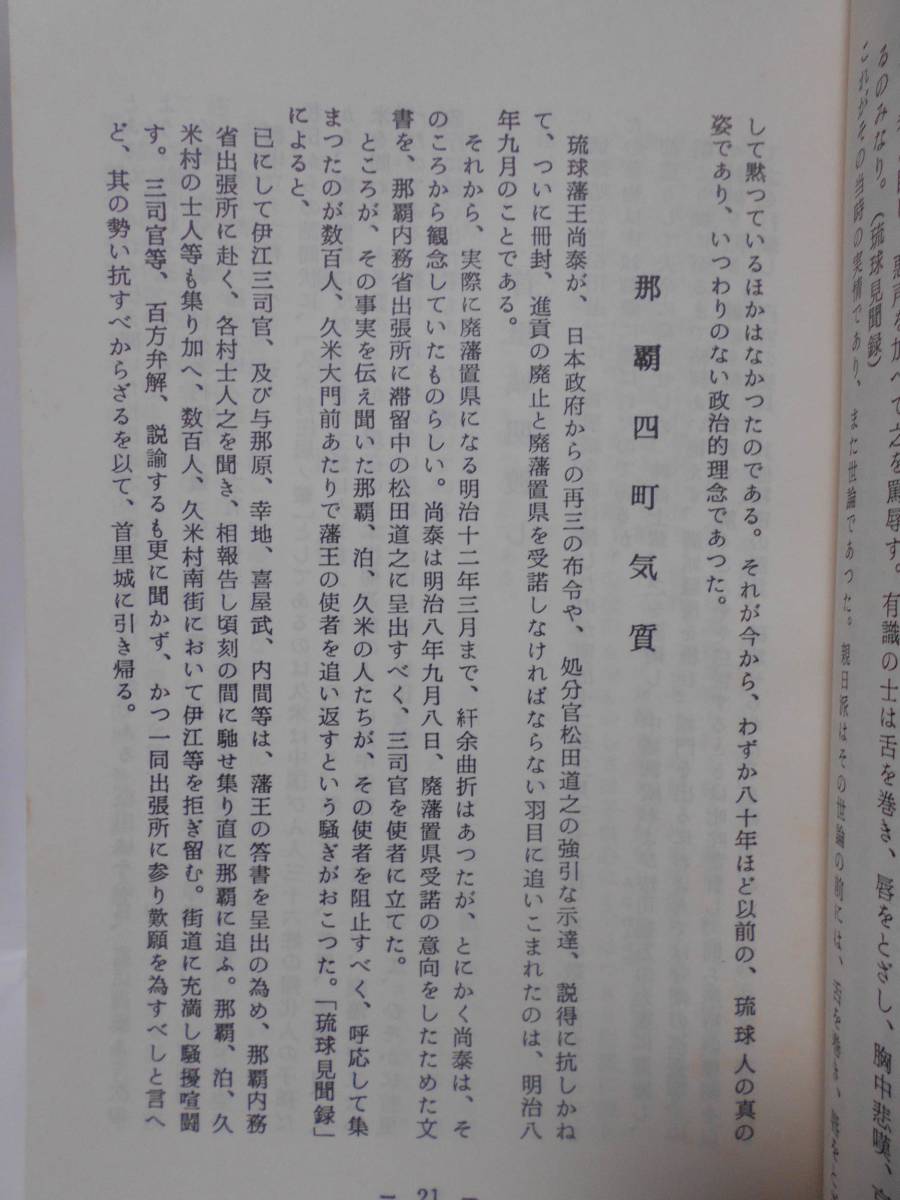 悪声を加へて之を罵辱す。有識の士は舌を巻き、唇をとざし、胸中悲嘆、
るのみなり。(琉球見聞録)
これがその当時の実情であり、また世論であつた。親日派はその世論の前には、舌を巻き、唇をと
して黙つているほかはなかつたのである。それが今から、わずか八十年ほど以前の、琉球人の真の
姿であり、いつわりのない政治的理念であつた。
那覇四町気質
琉球藩王尚泰が、日本政府からの再三の布令や、処分官松田道之の強引な示達、説得に抗しかね
て、ついに冊封、進貢の廃止と廃藩置県を受諾しなければならない羽目に追いこまれたのは、明治八
年九月のことである。
それから、実際に廃藩置県になる明治十二年三月まで、紆余曲折はあつたが、とにかく尚泰は、そ
のころから観念していたものらしい。尚泰は明治八年九月八日、廃藩置県受諾の意向をしたためた文
書を、那覇内務省出張所に滞留中の松田道之に呈出すべく、三司官を使者に立てた。
ところが、その事実を伝え聞いた那覇、泊、久米の人たちが、その使者を阻止すべく、呼応して集
まつたのが数百人、久米大門前あたりで藩王の使者を追い返すという騒ぎがおこつた。「琉球見聞録」
によると、
已にして伊江三司官、及び与那原、幸地、喜屋武、内間等は、藩王の答書を呈出の為め、那覇内務
省出張所に赴く、各村士人之を聞き、相報告し頃刻の間に馳せ集り直に那覇に追ふ。那覇、泊、久
米村の士人等も集り加へ、数百人、久米村南街において伊江等を拒ぎ留む。街道に充満し騒擾喧闘
す。三司官等、百方弁解、説諭するも更に聞かず、かつ一同出張所に参り歎願を為すべしと言へ
ど、其の勢い抗すべからざるを以て、首里城に引き帰る。
— 21 —